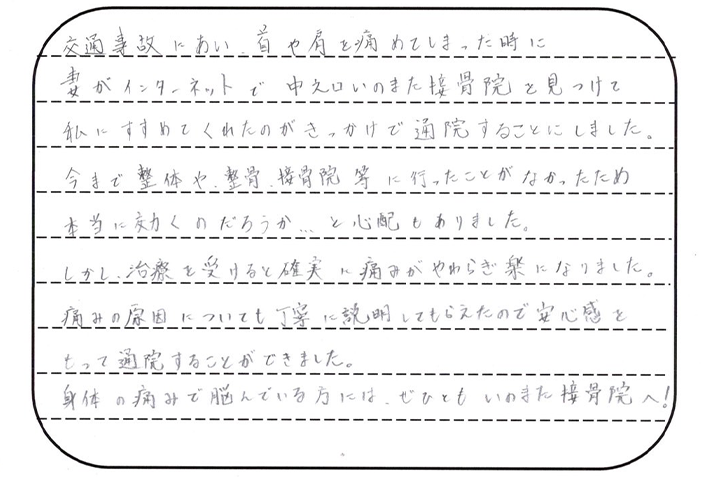 交通事故にあい、首や肩を痛めてしまった時に
妻がインターネットで中之口いのまた接骨院を見つけて
私にすすめてくれたのがきっかけで通院することにしました。
今まで整体や、整骨、接骨院等に行ったことがなかったため
本当に効くのだろうか…と心配もありました。
しかし、治療を受けると確実に痛みがやわらぎ楽になりました。
痛みの原因についても丁寧に説明してもらえたので安心感を
もって通院することができました。
身体の痛みで脳んでいる方には、ぜひともいのまた接骨院へ!